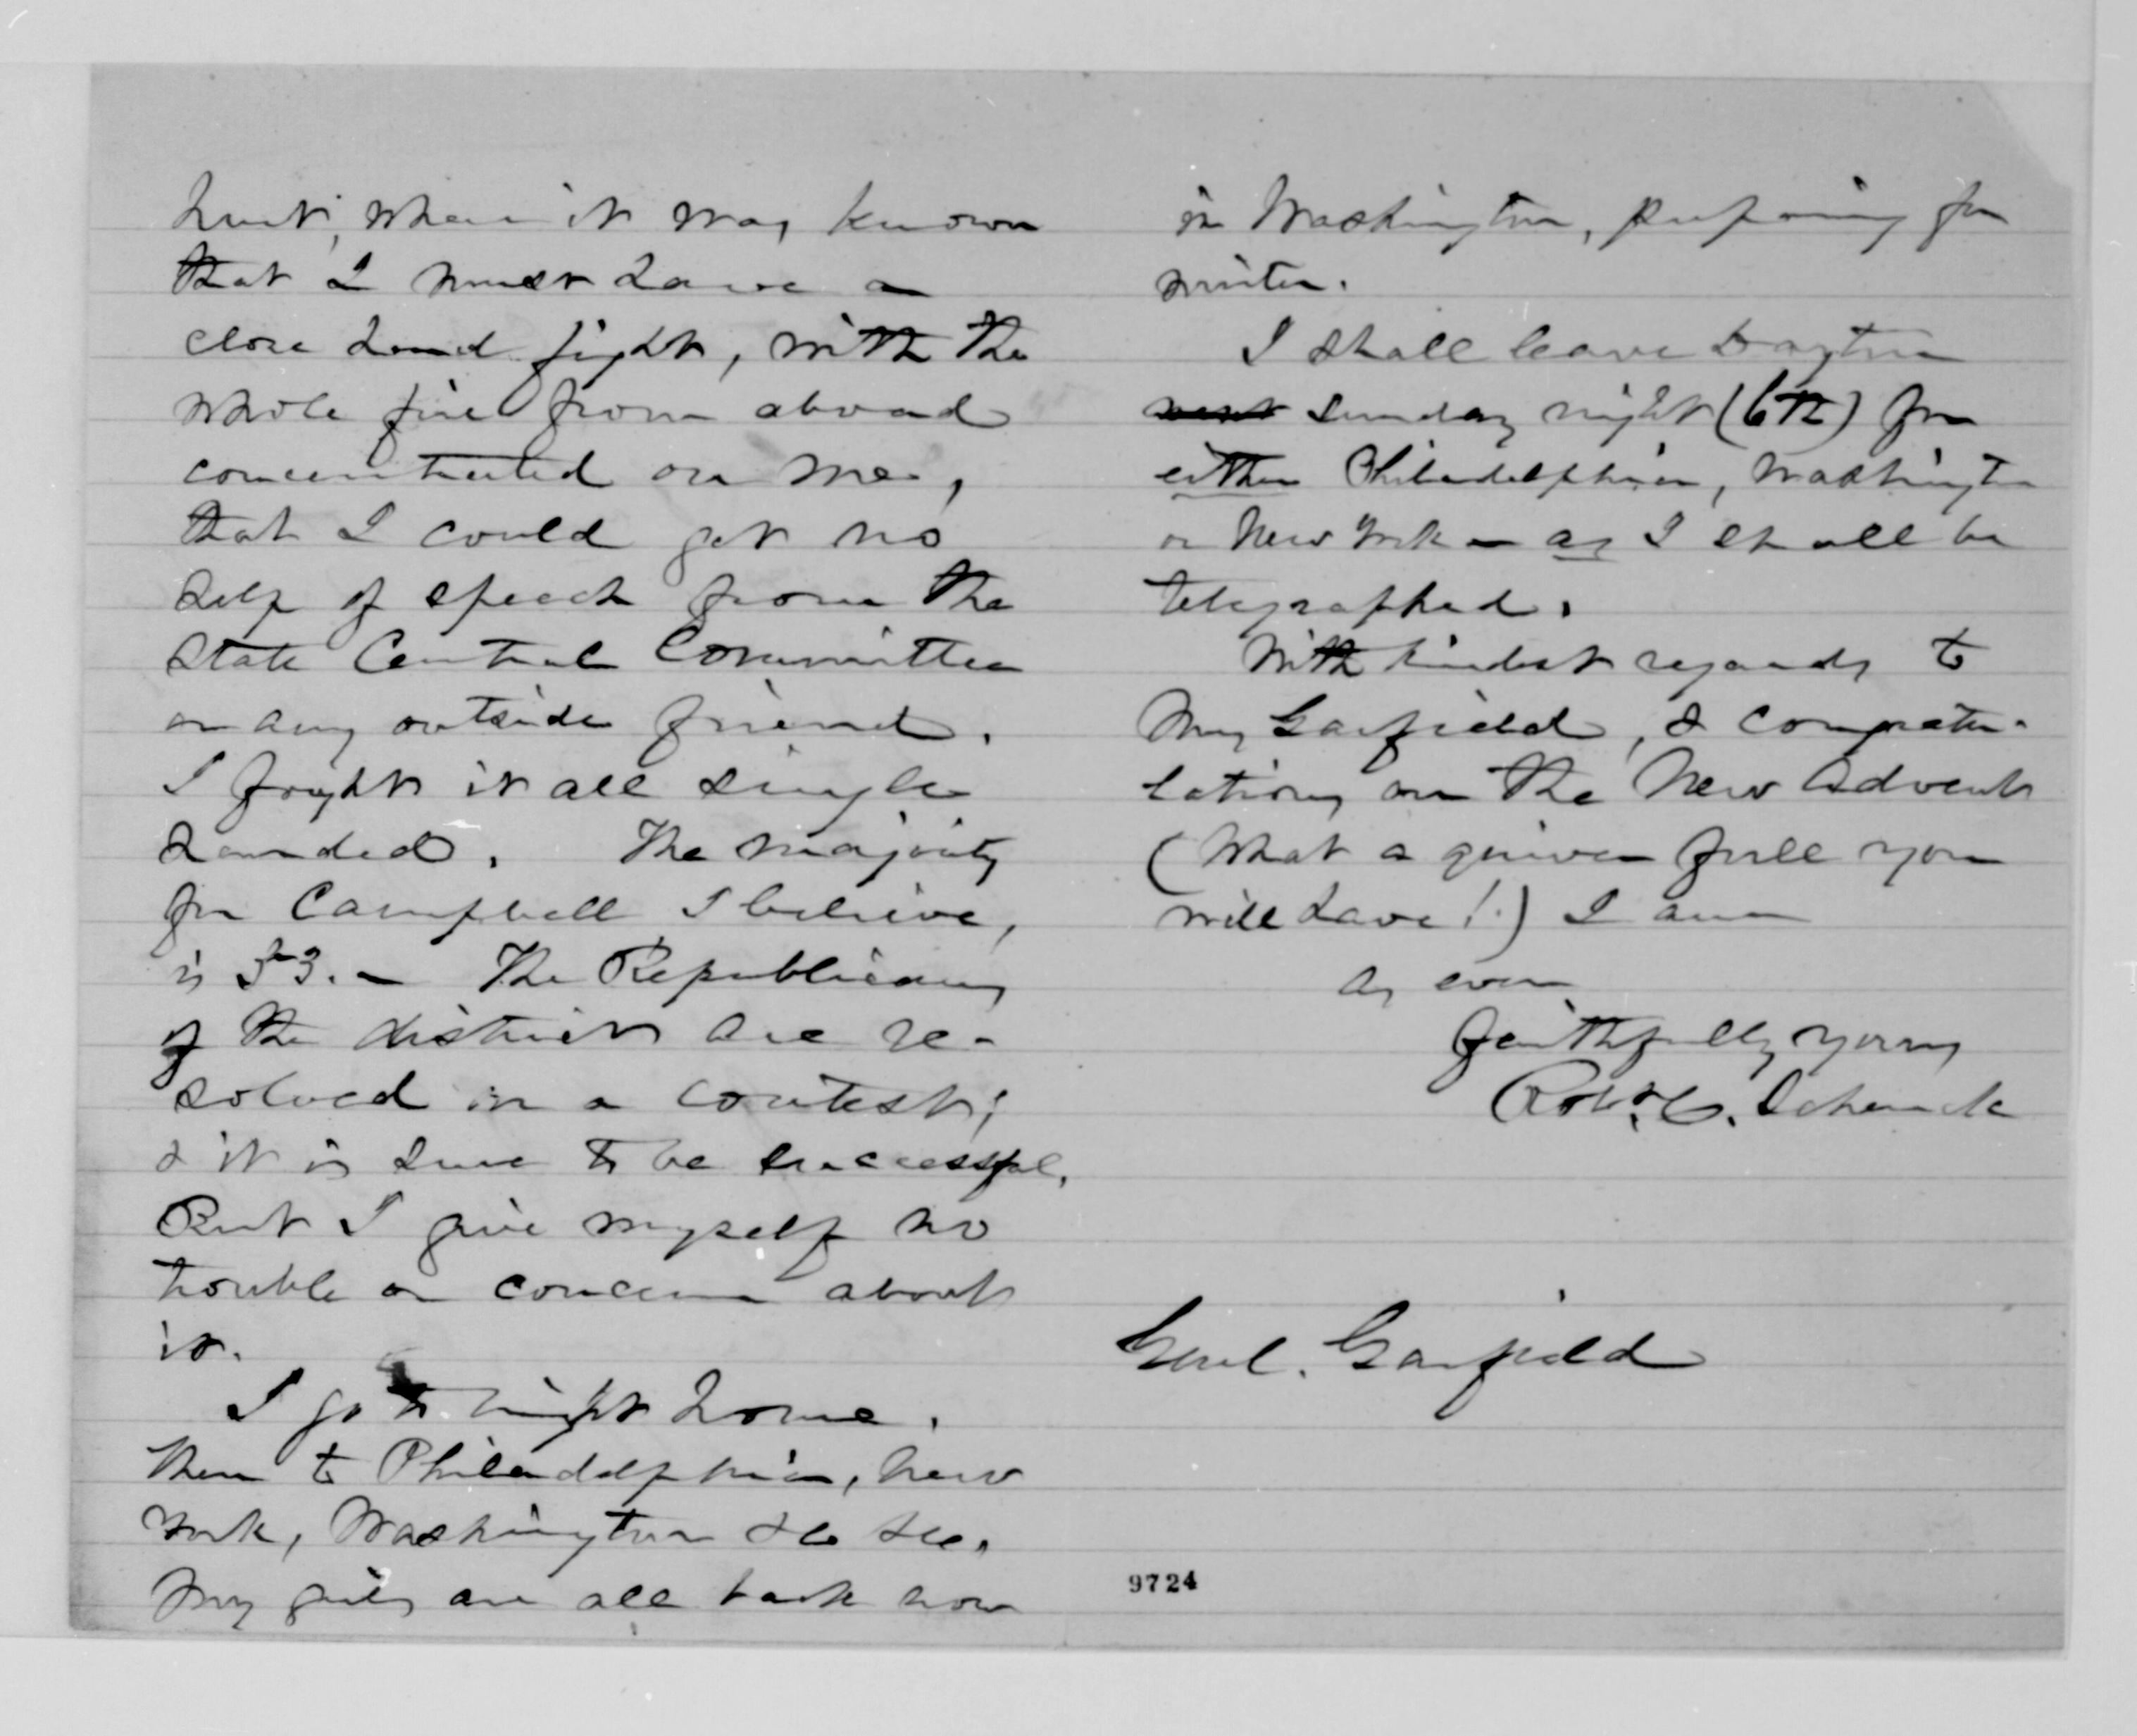 hurt, when it was known
that I must have a
close hand fight, with the
whole fire from abroad
concentrated on me,
that I could get no
help of speech from the
State Central Committee
or any outside friend.
I fought it all single
handed. The majority
for Campbell I believe,
is 53. — The Republicans
of the district are re-
solved in a contest;
& it is sure to be successful.
But I give myself no
trouble or concern about
it.
I go to night home.
Then to Philadelphia, New
York, Washington &c &c.
My girls are all back now
in Washington, preparing for
winter.
I shall leave Dayton
next Sunday night (6th) for
either Philadelphia, Washington
or New York — as I shall be
telegraphed.
With kindest regards to
Mrs Garfield, & congratu-
lations on the New Advent
(What a quiver full you
will have!) I am
As ever
faithfully yours
Robt. C. Schenck
Genl. Garfield
9724